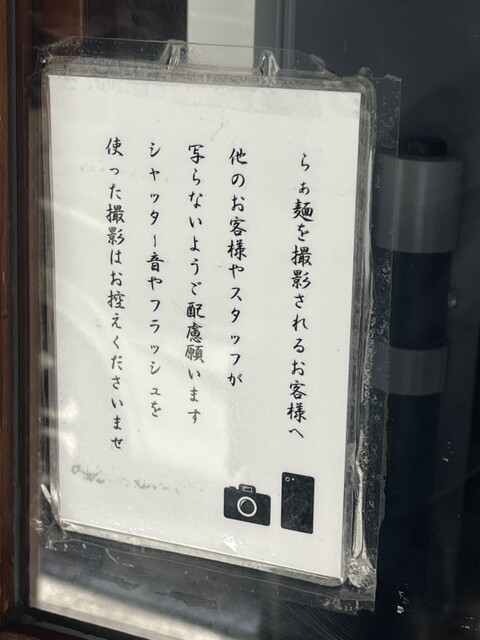 らぁ麺を撮影されるお客様へ
他のお客様やスタッフが
写らないようご配慮願います
シャッター音やフラッシュを
使った撮影はお控えくださいませ